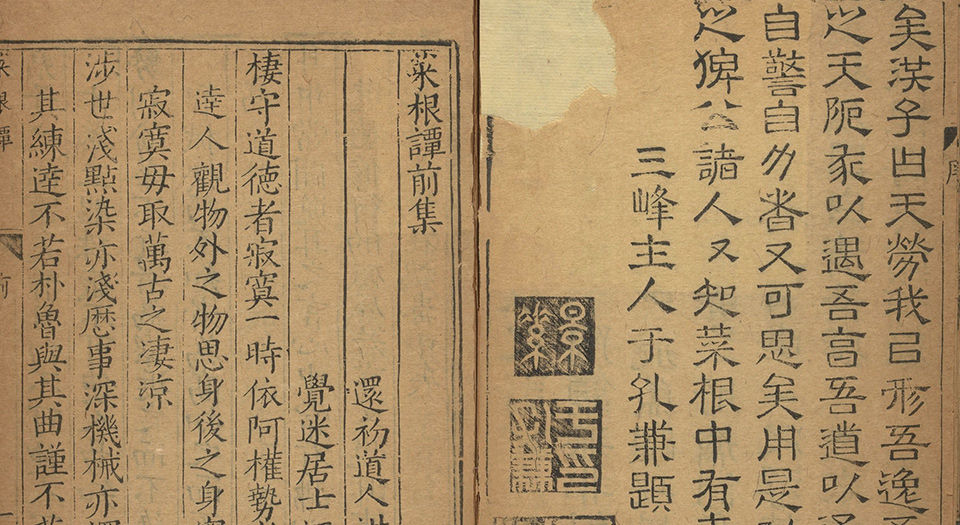 矣漢子曰天勞我以形吾逸
之天阨我以遇吾高吾道以
自警自力者又可思矣用是
之俾公諸人又知菜根中有
三峰主人于孔兼題
景素
于印孔兼
序
菜根譚前集
還初道人
覺迷居士
棲守道德者寂寞一時依阿權勢
達人觀物外之物思身後之身
寂寞毋取萬古之淒涼
涉世淺點染亦淺歷事深機械亦
其練達不若朴魯與其曲謹不
菜根譚
前